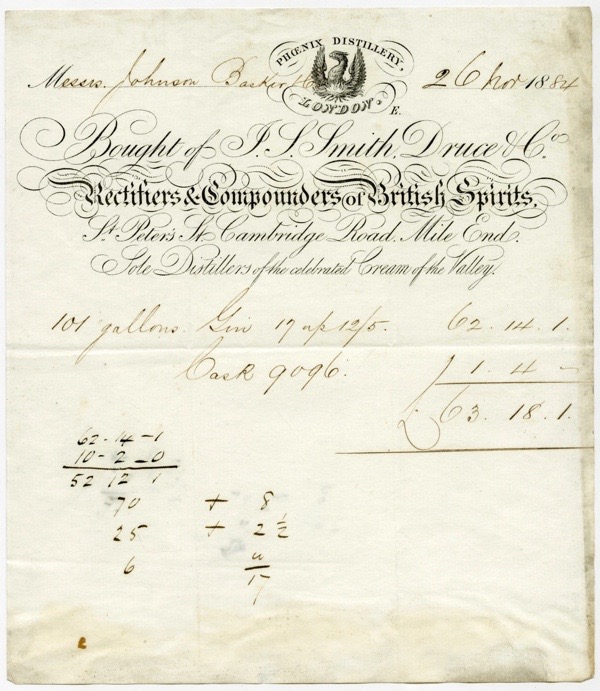 PHŒNIX DISTILLERY,
LONDON. E.
Messrs. Johnson Basker & Co 26 Nov 1884
Bought of J. S. Smith, Druce & Co.
Rectifiers & Compounders of British Spirits,
St. Peters St. Cambridge Road, Mile End.
Sole Distillers of the celebrated Cream of the Valley.
101 gallons. Gin 17 up 12/5. 62. 14. 1.
Cask 9096. 1. 4 -
£63. 18. 1.
62-14-1
10-2-0
52 12 1
70 + 8
25 + 2 1/2
6
17